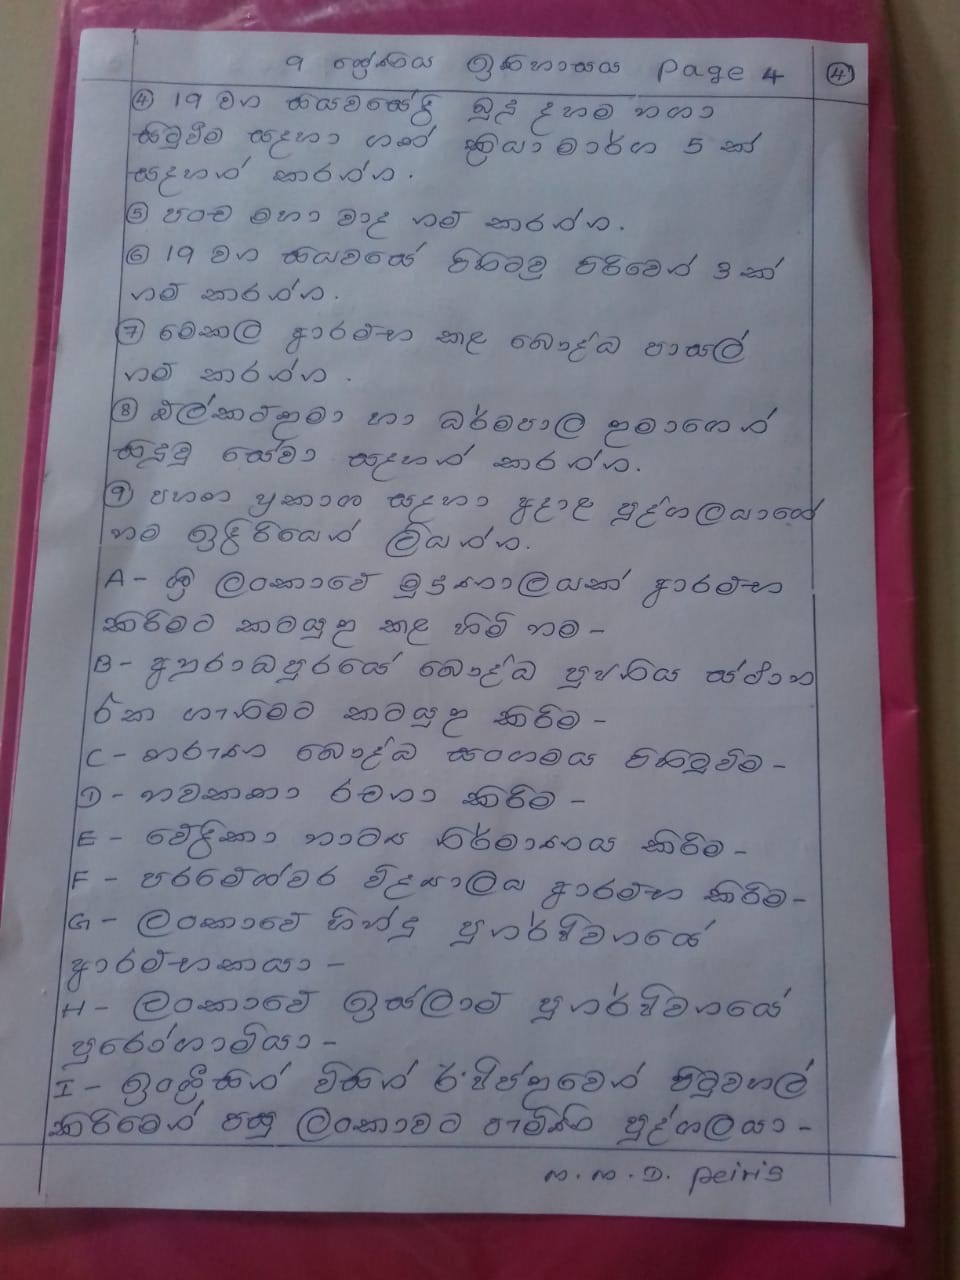 9 ශ්‍රේණිය ඉතිහාසය page 4 ④
④ 19 වන සියවසේදී බුදු දහම නගා
සිටුවීම සඳහා ගත් ක්‍රියාමාර්ග 5 ක්
සඳහන් කරන්න.
⑤ පංච මහා වාද නම් කරන්න.
⑥ 19 වන සියවසේ පිහිටවූ පිරිවෙන් 3 ක්
නම් කරන්න.
⑦ මෙකල ආරම්භ කළ බෞද්ධ පාසල්
නම් කරන්න.
⑧ ඕල්කට්තුමා හා ධර්මපාල තුමාගෙන්
සිදුවූ සේවා සඳහන් කරන්න.
⑨ පහත ප්‍රකාශ සඳහා අදාළ පුද්ගලයාගේ
නම ඉදිරියෙන් ලියන්න.
A - ශ්‍රී ලංකාවේ මුද්‍රණාලයක් ආරම්භ
කිරීමට කටයුතු කළ හිමි නම -
B - අනුරාධපුරයේ බෞද්ධ පූජනීය ස්ථාන
රැක ගැනීමට කටයුතු කිරීම -
C - තරුණ බෞද්ධ සංගමය පිහිටුවීම -
D - නවකතා රචනා කිරීම -
E - වේදිකා නාට්‍ය නිර්මාණය කිරීම -
F - පරමේශ්වර විද්‍යාලය ආරම්භ කිරීම -
G - ලංකාවේ හින්දු පුනර්ජීවනයේ
ආරම්භකයා -
H - ලංකාවේ ඉස්ලාම් පුනර්ජීවනයේ
පුරෝගාමියා -
I - ඉංග්‍රීසීන් විසින් ඊජිප්තුවෙන් පිටුවහල්
කිරීමෙන් පසු ලංකාවට පැමිණි පුද්ගලයා -
M. M. D. Peiris